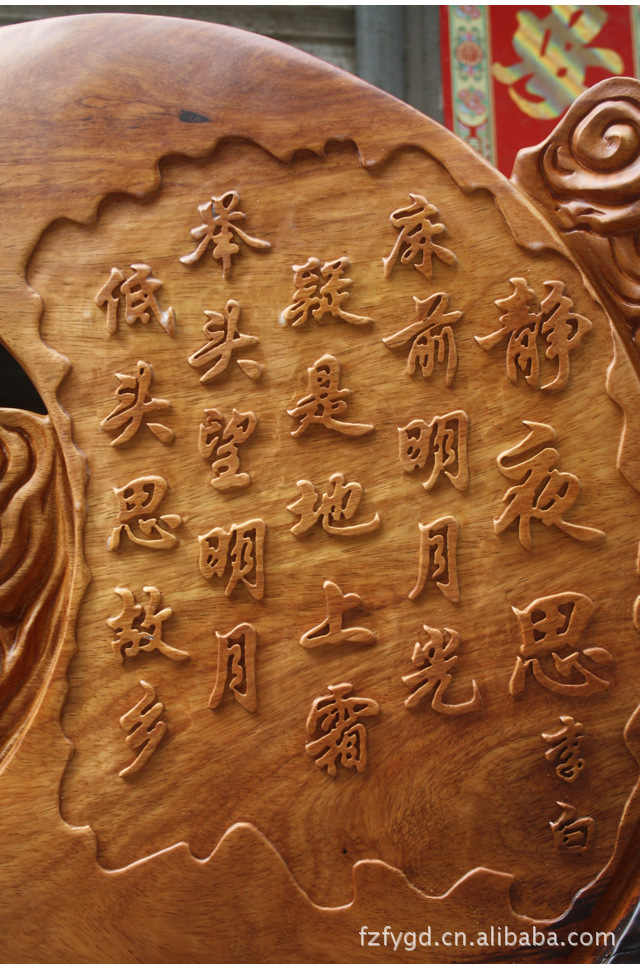 静夜思
李白
床前明月光
疑是地上霜
举头望明月
低头思故乡
fzfygd.cn.alibaba.com